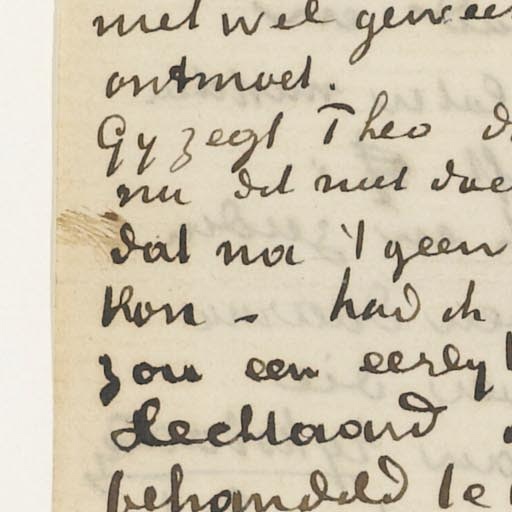 niet wel gewees
ontmoet.
Gy zegt Theo d
nu dit niet doe
dat na 't geen
kon – had ik
zou een eerly
slechtaard
behandeld te